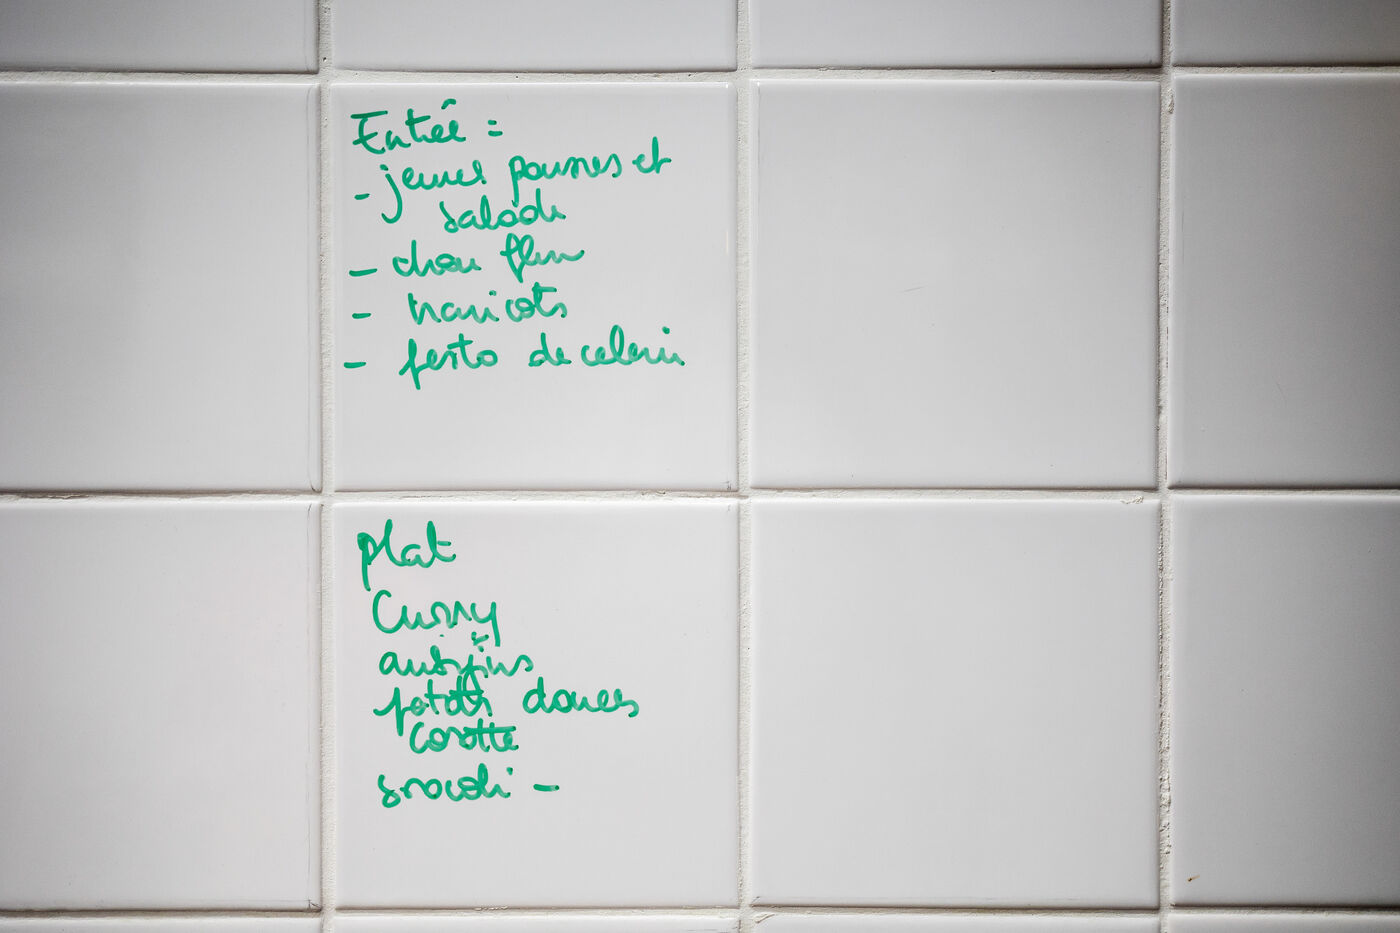 Entrée :
- jeunes pousses et
salade
- chou fleur
- haricots
- pesto de celeri
plat
Curry
aubergines
patate douces
Carotte
brocoli -